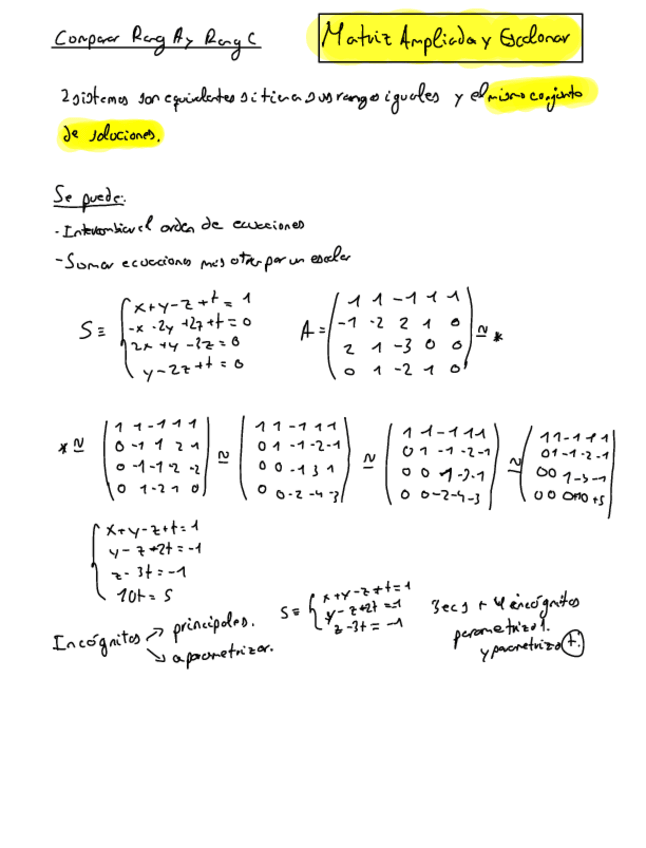 Comparar Rang A y Rang C
Matriz Ampliada y Escalonar
2 sistemas son equivalentes si tienen sus rangos iguales y el mismo conjunto
de soluciones.
Se puede:
- Intercambiar el orden de ecuaciones
- Sumar ecuaciones más otra por un escalar
S ≡ { x+y-z+t=1
-x-2y+2z+t=0
2x+y-3z=0
y-2z+t=0
A = ( 1 1 -1 1 1
-1 -2 2 1 0
2 1 -3 0 0
0 1 -2 1 0 ) ≃ *
* ≃ ( 1 1 -1 1 1
0 -1 1 2 1
0 -1 -1 2 -2
0 1 -2 1 0 )
≃ ( 1 1 -1 1 1
0 1 -1 -2 -1
0 0 -1 3 1
0 0 -2 -4 -3 )
≃ ( 1 1 -1 1 1
0 1 -1 -2 -1
0 0 1 -3 -1
0 0 -2 -4 -3 )
≃ ( 1 1 -1 1 1
0 1 -1 -2 -1
0 0 1 -3 -1
0 0 0 +5 )
{ x+y-z+t=1
y-z+2t=-1
z-3t=-1
10t=5
Incógnitas → principales.
↘ a parametrizar.
S ≡ { x+y-z+t=1
y-z+2t=-1
z-3t=-1
3 ecs + 4 incógnitas
parametrizo 1.
y parametrizo t.